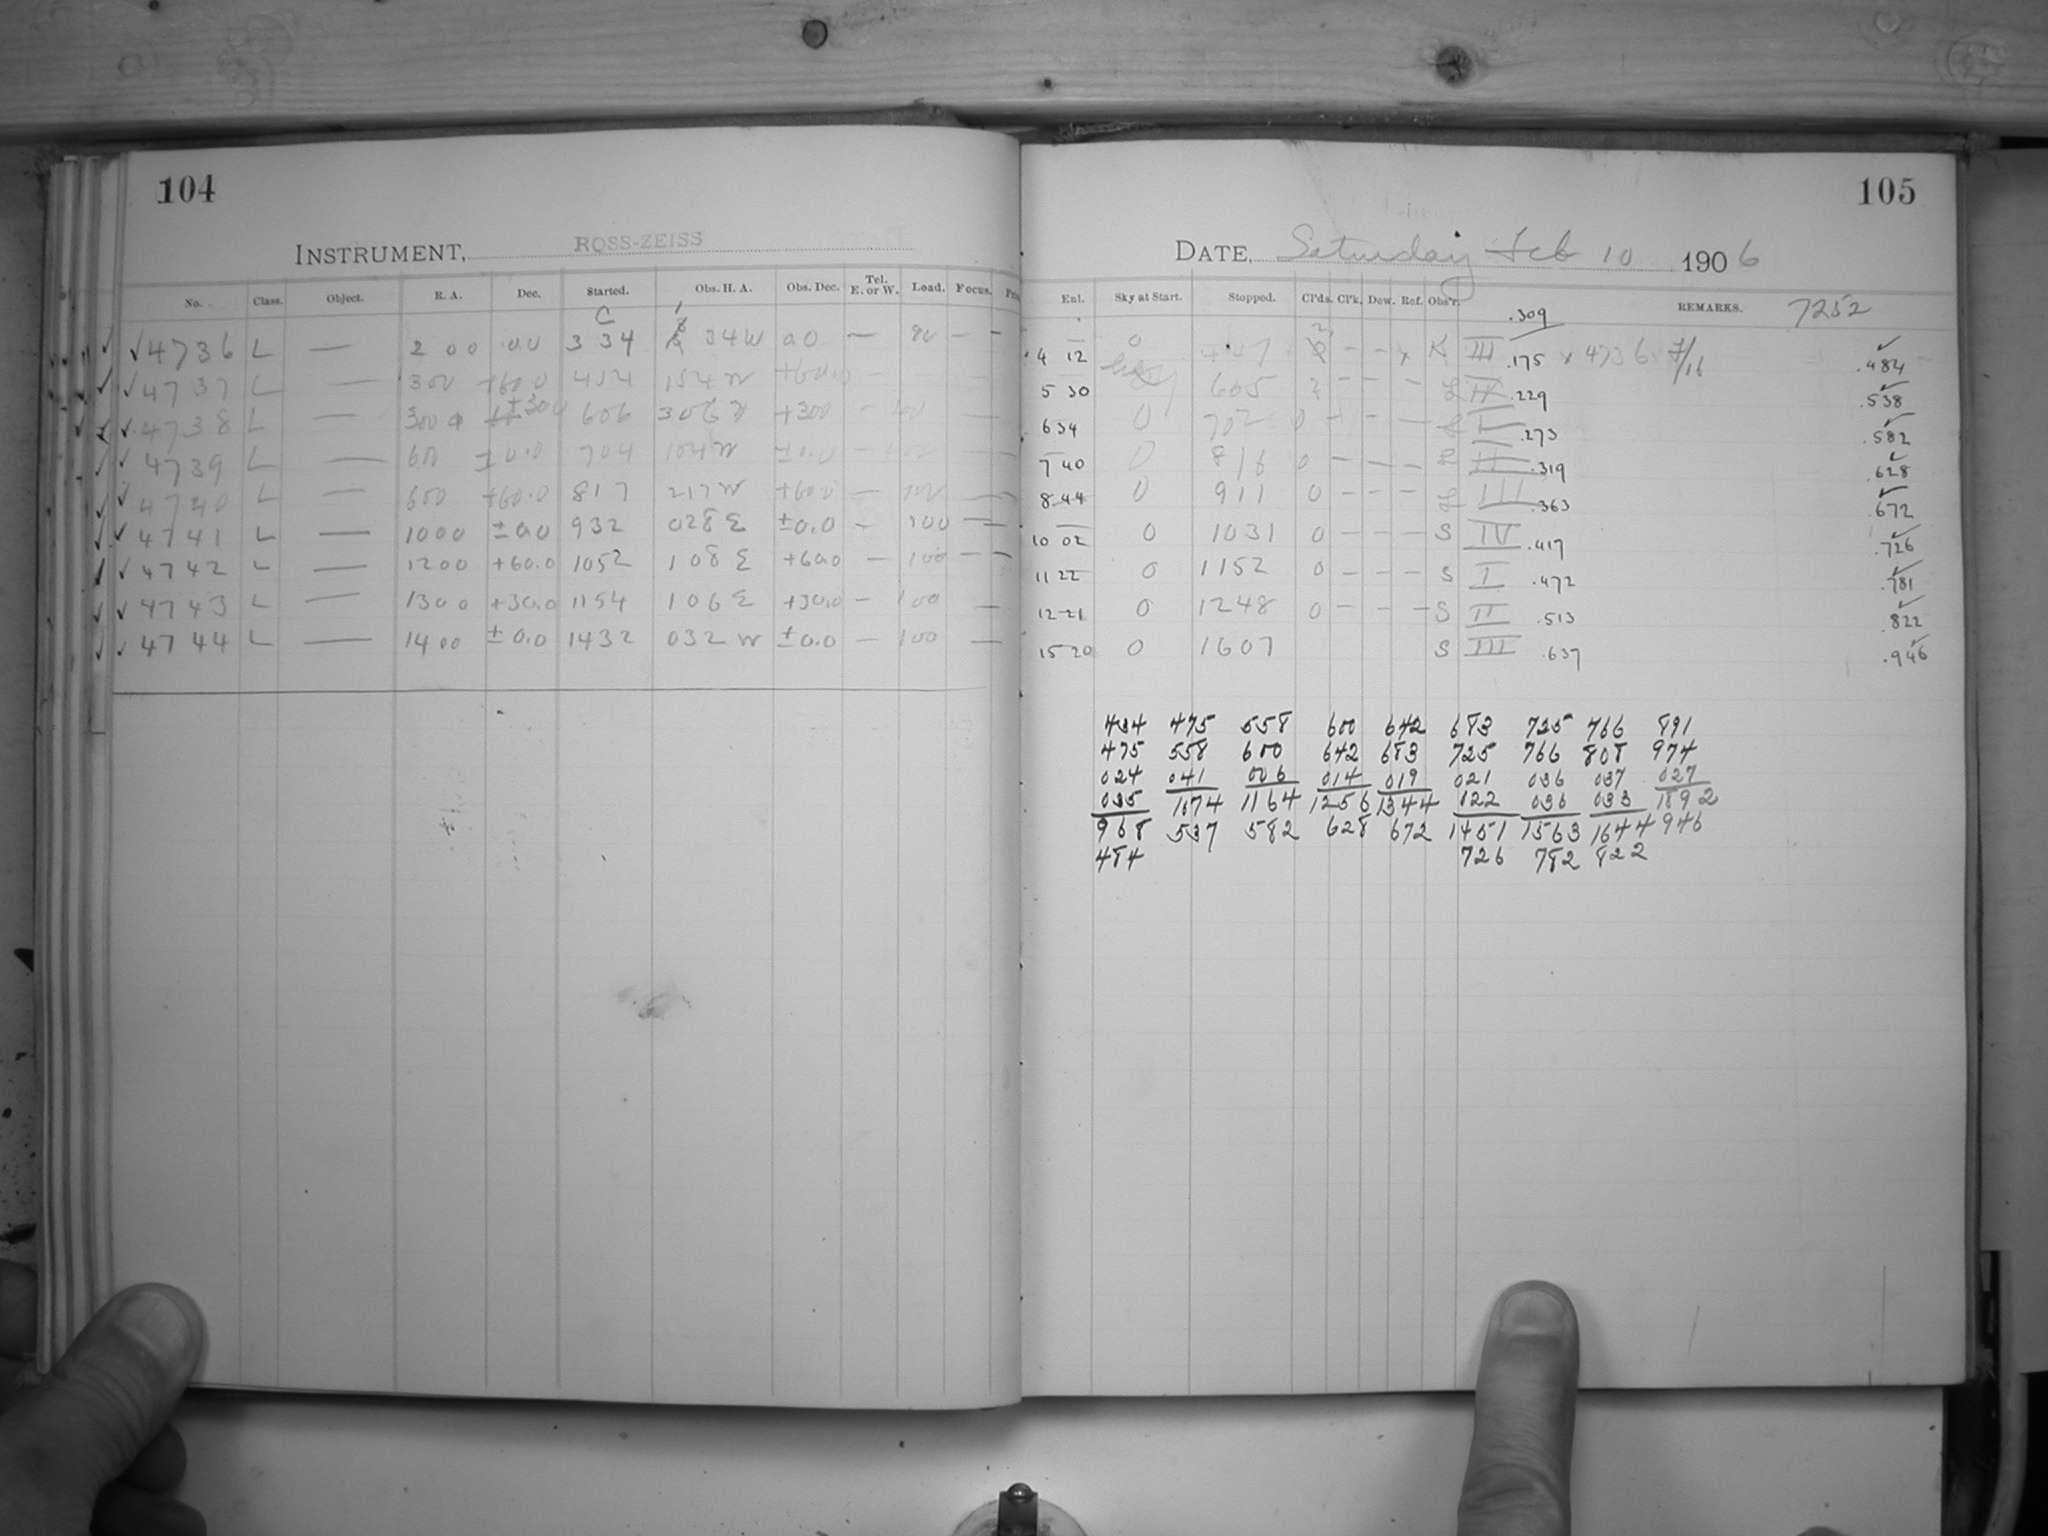 104
INSTRUMENT, ROSS-ZEISS
No. Class. Object. R. A. Dec. Started. Obs. H. A. Obs. Dec. Tel. E. or W. Load. Focus.
C
4736 L — 2 00 00 3 34 34 W 00 — 80 — —
4737 L — 300 +60.0 454 154 W +60.0 —
4738 L — 300 +300 606 306 W +300 —
4739 L — 600 ±0.0 704 104 W ±0.0 —
4740 L — 600 +60.0 817 217 W +60.0 — —
4741 L — 1000 ±0.0 932 028 E ±0.0 — 100 —
4742 L — 1200 +60.0 1052 108 E +60.0 — 100 — —
4743 L — 1300 +30.0 1154 106 E +30.0 — 100 —
4744 L — 1400 ±0.0 1432 032 W ±0.0 — 100 —
105
DATE, Saturday Feb 10 1906
Ent. Sky at Start. Stopped. Cl'ds. Cl'k. Dew. Ref. Obs'r. REMARKS. 7252
.309
4 12 0 — — x K III .175 x 4736 F/16 .484
5 30 605 2 — — — L IV .229 .538
6 34 0 702 0 — — — L I .273 .582
7 40 0 816 0 — — — L II .319 .628
8 44 0 911 0 — — — L III .363 .672
10 02 0 1031 0 — — — S IV .417 .726
11 22 0 1152 0 — — — S I .472 .781
12 21 0 1248 0 — — — S II .513 .822
15 20 0 1607 S III .637 .946
434 475 558 600 642 683 725 766 891
475 558 600 642 683 725 766 808 974
024 041 006 014 019 021 036 037 027
035 1074 1164 1256 1344 122 036 033 1892
968 537 582 628 672 1451 1563 1644 946
484 726 782 822